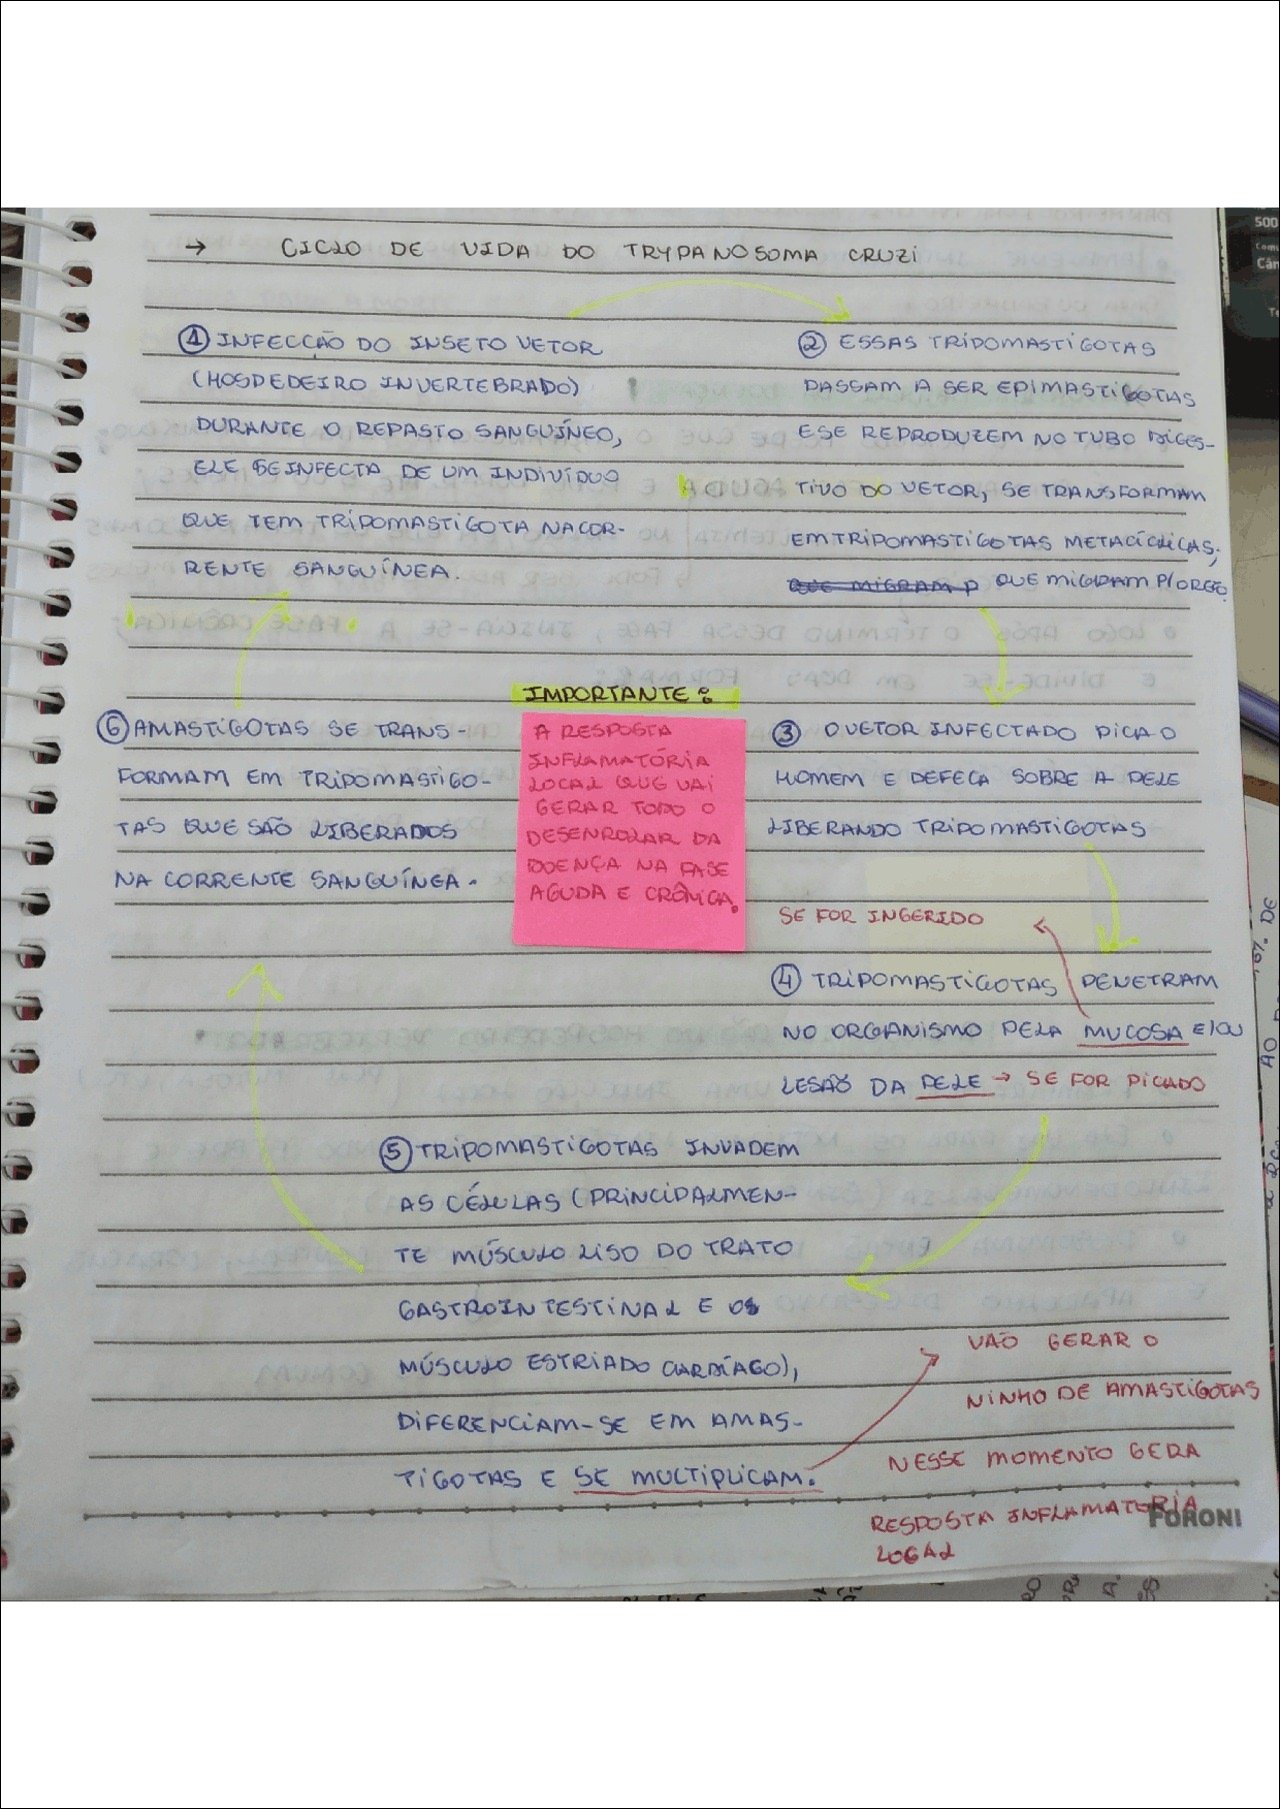 → CICLO DE VIDA DO TRYPANOSOMA CRUZI
① INFECÇÃO DO INSETO VETOR
(HOSPEDEIRO INVERTEBRADO)
DURANTE O REPASTO SANGUÍNEO,
ELE SE INFECTA DE UM INDIVÍDUO
QUE TEM TRIPOMASTIGOTA NA COR-
RENTE SANGUÍNEA.
② ESSAS TRIPOMASTIGOTAS
PASSAM A SER EPIMASTIGOTAS
E SE REPRODUZEM NO TUBO DIGES-
TIVO DO VETOR, SE TRANSFORMAM
EM TRIPOMASTIGOTAS METACÍCLICAS,
QUE MIGRAM P QUE MIGRAM P/ O RETO
③ O VETOR INFECTADO PICA O
HOMEM E DEFECA SOBRE A PELE
LIBERANDO TRIPOMASTIGOTAS
SE FOR INGERIDO
④ TRIPOMASTIGOTAS PENETRAM
NO ORGANISMO PELA MUCOSA E/OU
LESAÕ DA PELE → SE FOR PICADO
⑤ TRIPOMASTIGOTAS INVADEM
AS CÉLULAS (PRINCIPALMEN-
TE MÚSCULO LISO DO TRATO
GASTROINTESTINAL E OS
MÚSCULO ESTRIADO CARDÍACO),
DIFERENCIAM-SE EM AMAS-
TIGOTAS E SE MULTIPLICAM.
VÃO GERAR O
NINHO DE AMASTIGOTAS
NESSE MOMENTO GERA
RESPOSTA INFLAMATÓRIA
LOCAL
⑥ AMASTIGOTAS SE TRANS-
FORMAM EM TRIPOMASTIGO-
TAS QUE SÃO LIBERADOS
NA CORRENTE SANGUÍNEA.
IMPORTANTE:
A RESPOSTA
INFLAMATÓRIA
LOCAL QUE VAI
GERAR TODO O
DESENROLAR DA
DOENÇA NA FASE
AGUDA E CRÔNICA.
FORONI
500